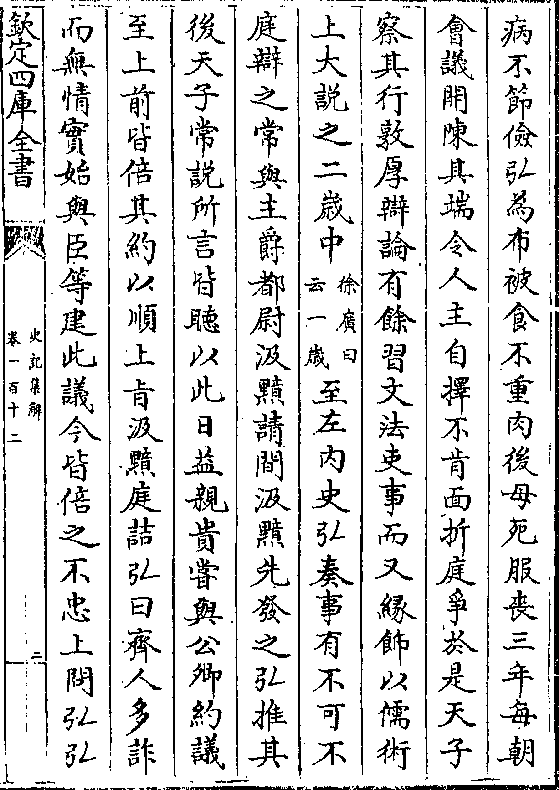 病不節儉弘為布被食不重肉後母死服喪三年每朝
會議開陳其端令人主自擇不肯面折庭爭於是天子
察其行敦厚辯論有餘習文法吏事而又緣飾以儒術
上大説之二歲中徐廣曰云一歲至左内史弘奏事有不可不
庭辯之常與主爵都尉汲黯請間汲黯先發之弘推其
後天子常説所言皆聽以此日益親貴嘗與公卿約議
至上前皆倍其約以順上㫖汲黯庭詰弘曰齊人多詐
而無情實始與臣等建此議今皆倍之不忠上問弘弘
欽定四庫全書
史記集解
卷一百十二
二